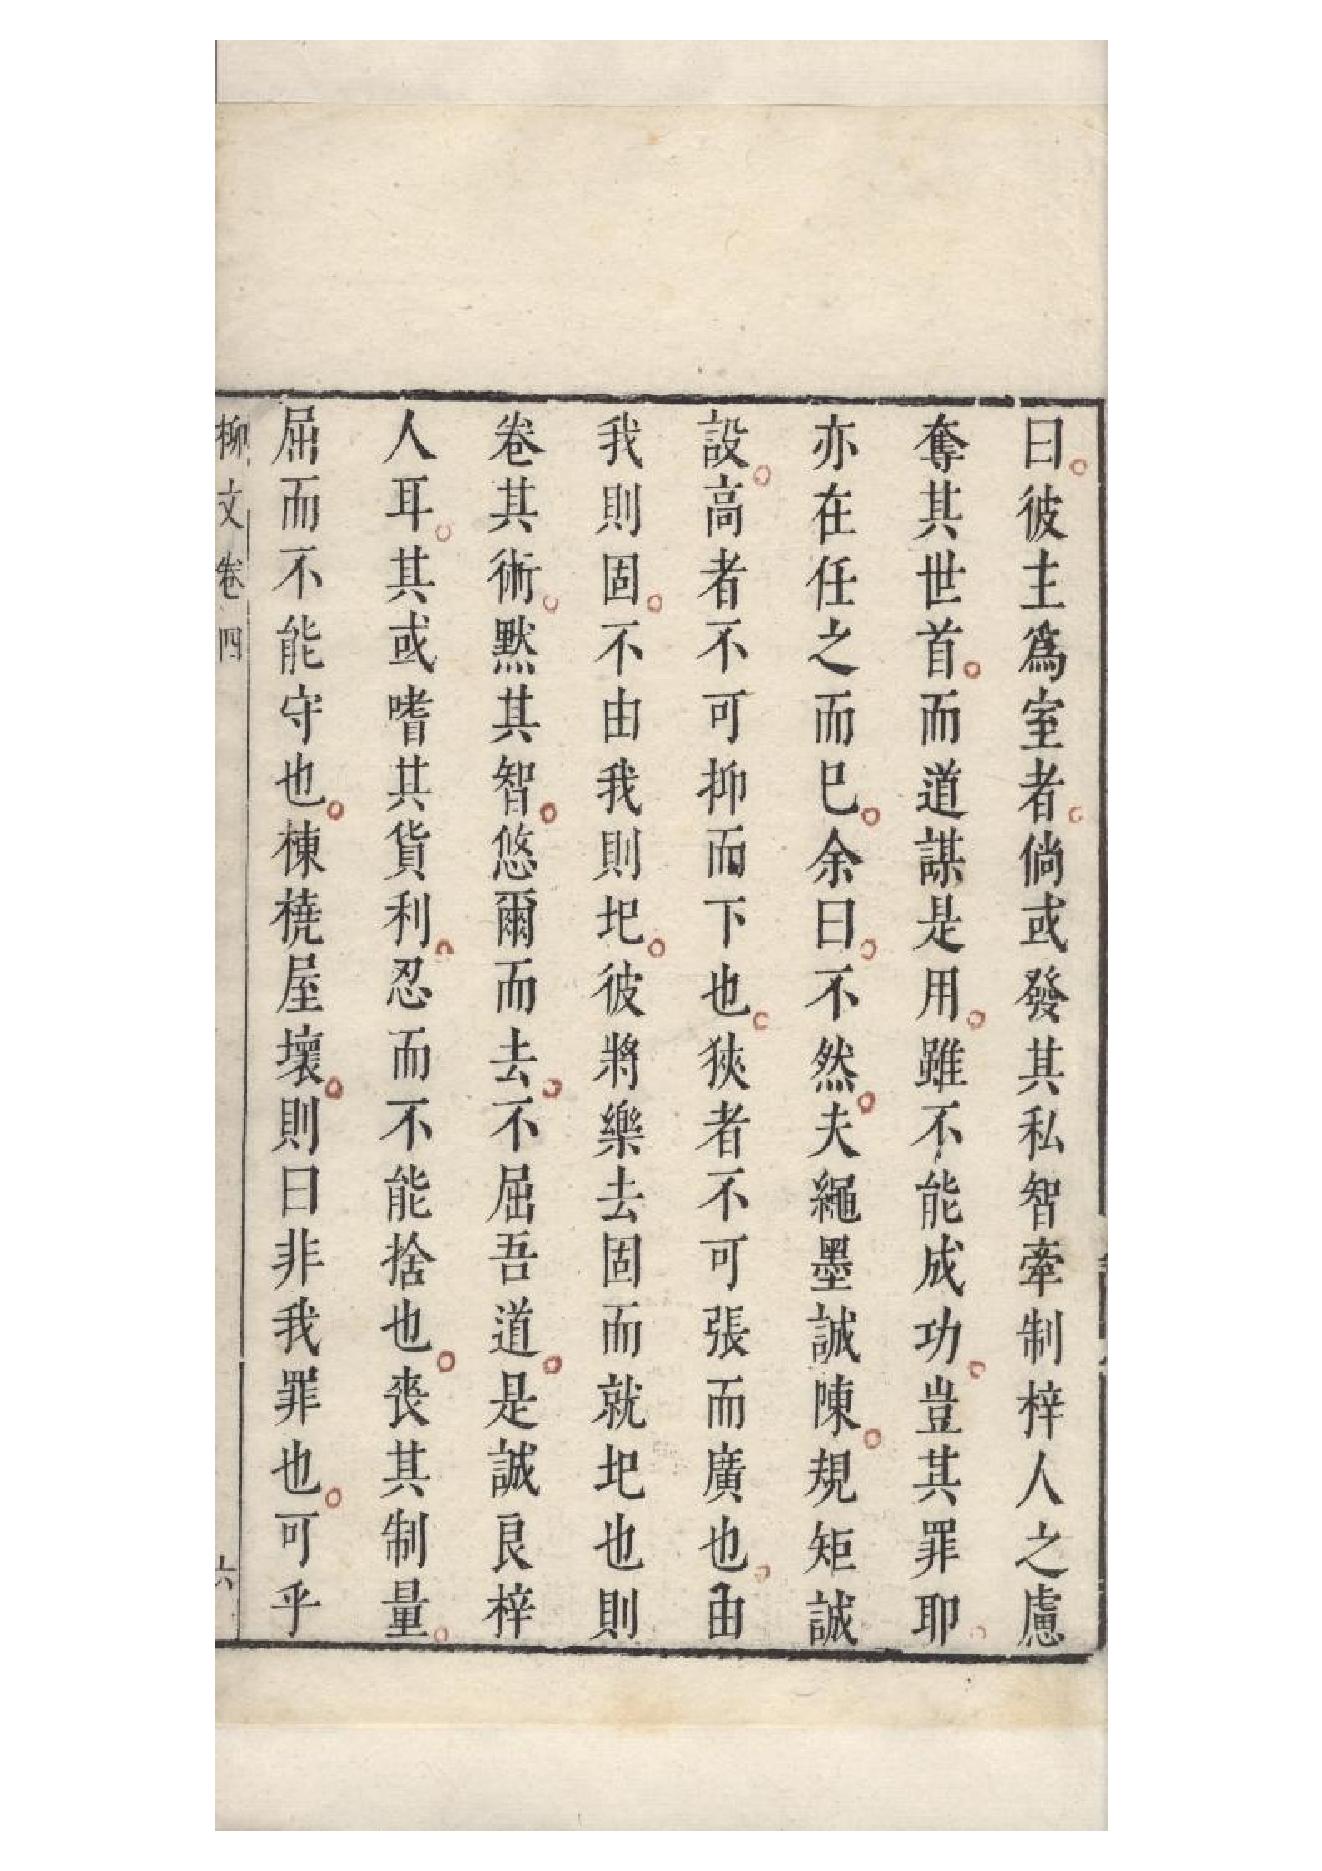 曰彼主爲室者倘或發其私智牽制梓人之慮
奪其世首而道謀是用雖不能成功豈其罪耶
亦在任之而已余曰不然夫繩墨誠陳規矩誠
設高者不可抑而下也狹者不可張而廣也由
我則固不由我則圮彼將樂去固而就圮也則
卷其術默其智悠爾而去不屈吾道是誠良梓
人耳其或嗜其貨利忍而不能捨也喪其制量
屈而不能守也棟橈屋壞則曰非我罪也可乎
柳文卷四
六